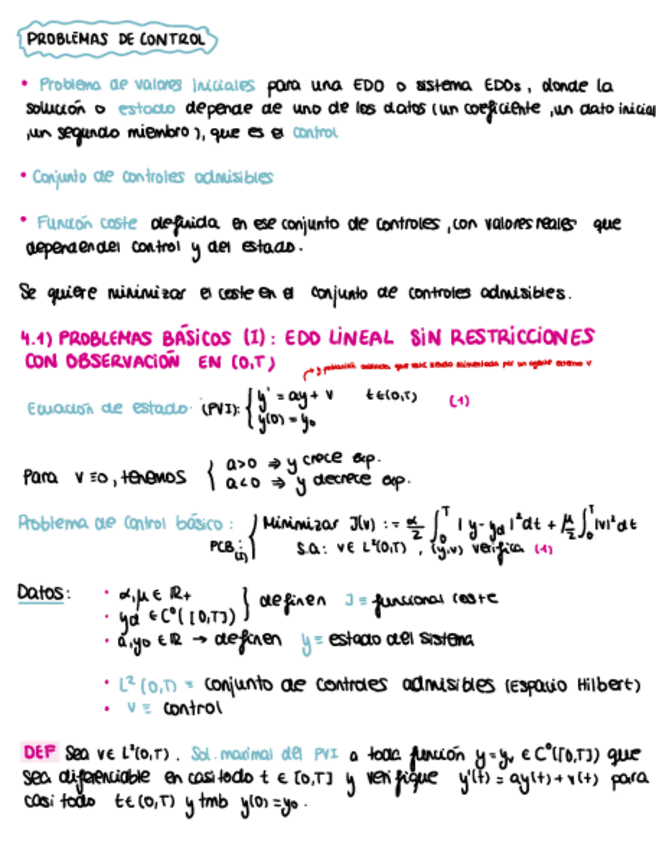 PROBLEMAS DE CONTROL
• Problema de valores iniciales para una EDO o sistema EDOs, donde la
solución o estado depende de uno de los datos (un coeficiente, un dato inicial
,un segundo miembro), que es el control
• Conjunto de controles admisibles
• Función coste definida en ese conjunto de controles, con valores reales que
dependen del control y del estado.
Se quiere minimizar el coste en el conjunto de controles admisibles.
4.1) PROBLEMAS BÁSICOS (I): EDO LINEAL SIN RESTRICCIONES
CON OBSERVACIÓN EN (0,T)
→ y población que está siendo alimentada por un agente externo v
Ecuación de estado: (PVI): { y' = ay + v t∈(0,T) (1)
y(0) = y₀
Para v≡0, tenemos { a>0 ⇒ y crece exp.
a<0 ⇒ y decrece exp.
Problema de control básico: { Minimizar J(v) := α/2 ∫₀ᵀ |y-yd|² dt + μ/2 ∫₀ᵀ |v|² dt
PCB(I): s.a: v∈ L²(0,T), (y,v) verifica (1)
Datos: • α,μ ∈ ℝ+ } definen J = funcional coste
• yd ∈ C⁰([0,T])
• a,y₀ ∈ ℝ → definen y = estado del sistema
• L²(0,T) = conjunto de controles admisibles (Espacio Hilbert)
• v ≡ control
DEF Sea v∈ L²(0,T). Sol. maximal del PVI a toda función y=yᵥ ∈ C⁰([0,T]) que
sea diferenciable en casi todo t ∈ [0,T] y verifique y'(t) = ay(t) + v(t) para
casi todo t∈(0,T) y tmb y(0)=y₀.